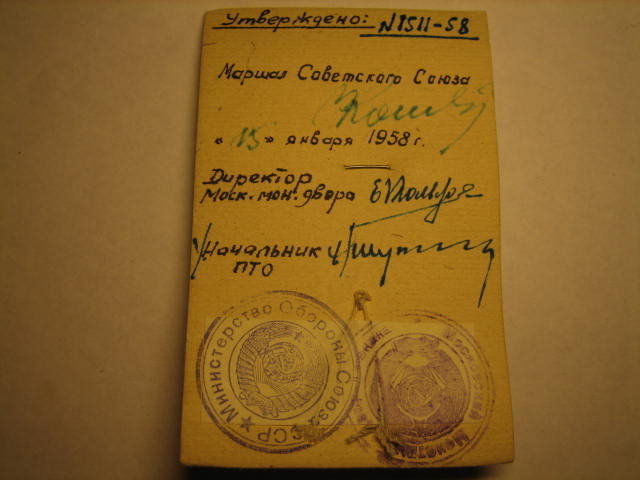 Утверждено: N1511-58
Маршал Советского Союза
"15" января 1958 г.
Директор
Моск. мон. двора
Начальник
ПТО
Министерство Обороны Союза ССР
Московский Монетный